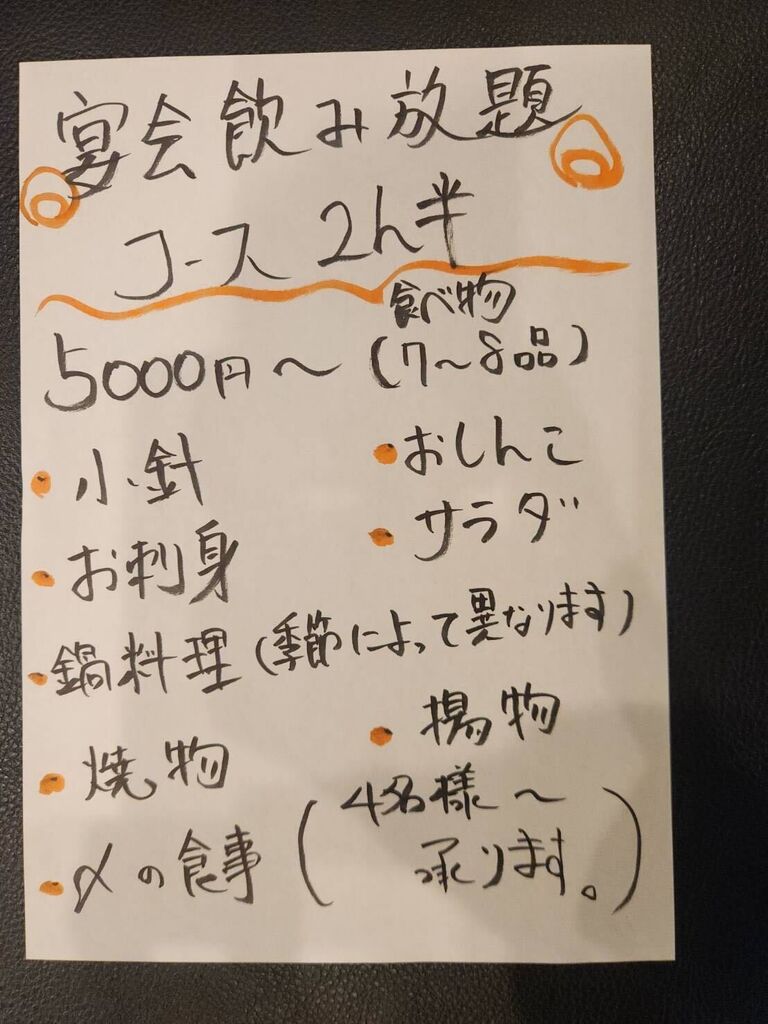 宴会飲み放題
コース 2h半
食べ物
5000円～ (7～8品)
・小針
・おしんこ
・お刺身
・サラダ
・鍋料理 (季節によって異なります)
・焼物
・揚物
・〆の食事 (4名様～
承ります。)